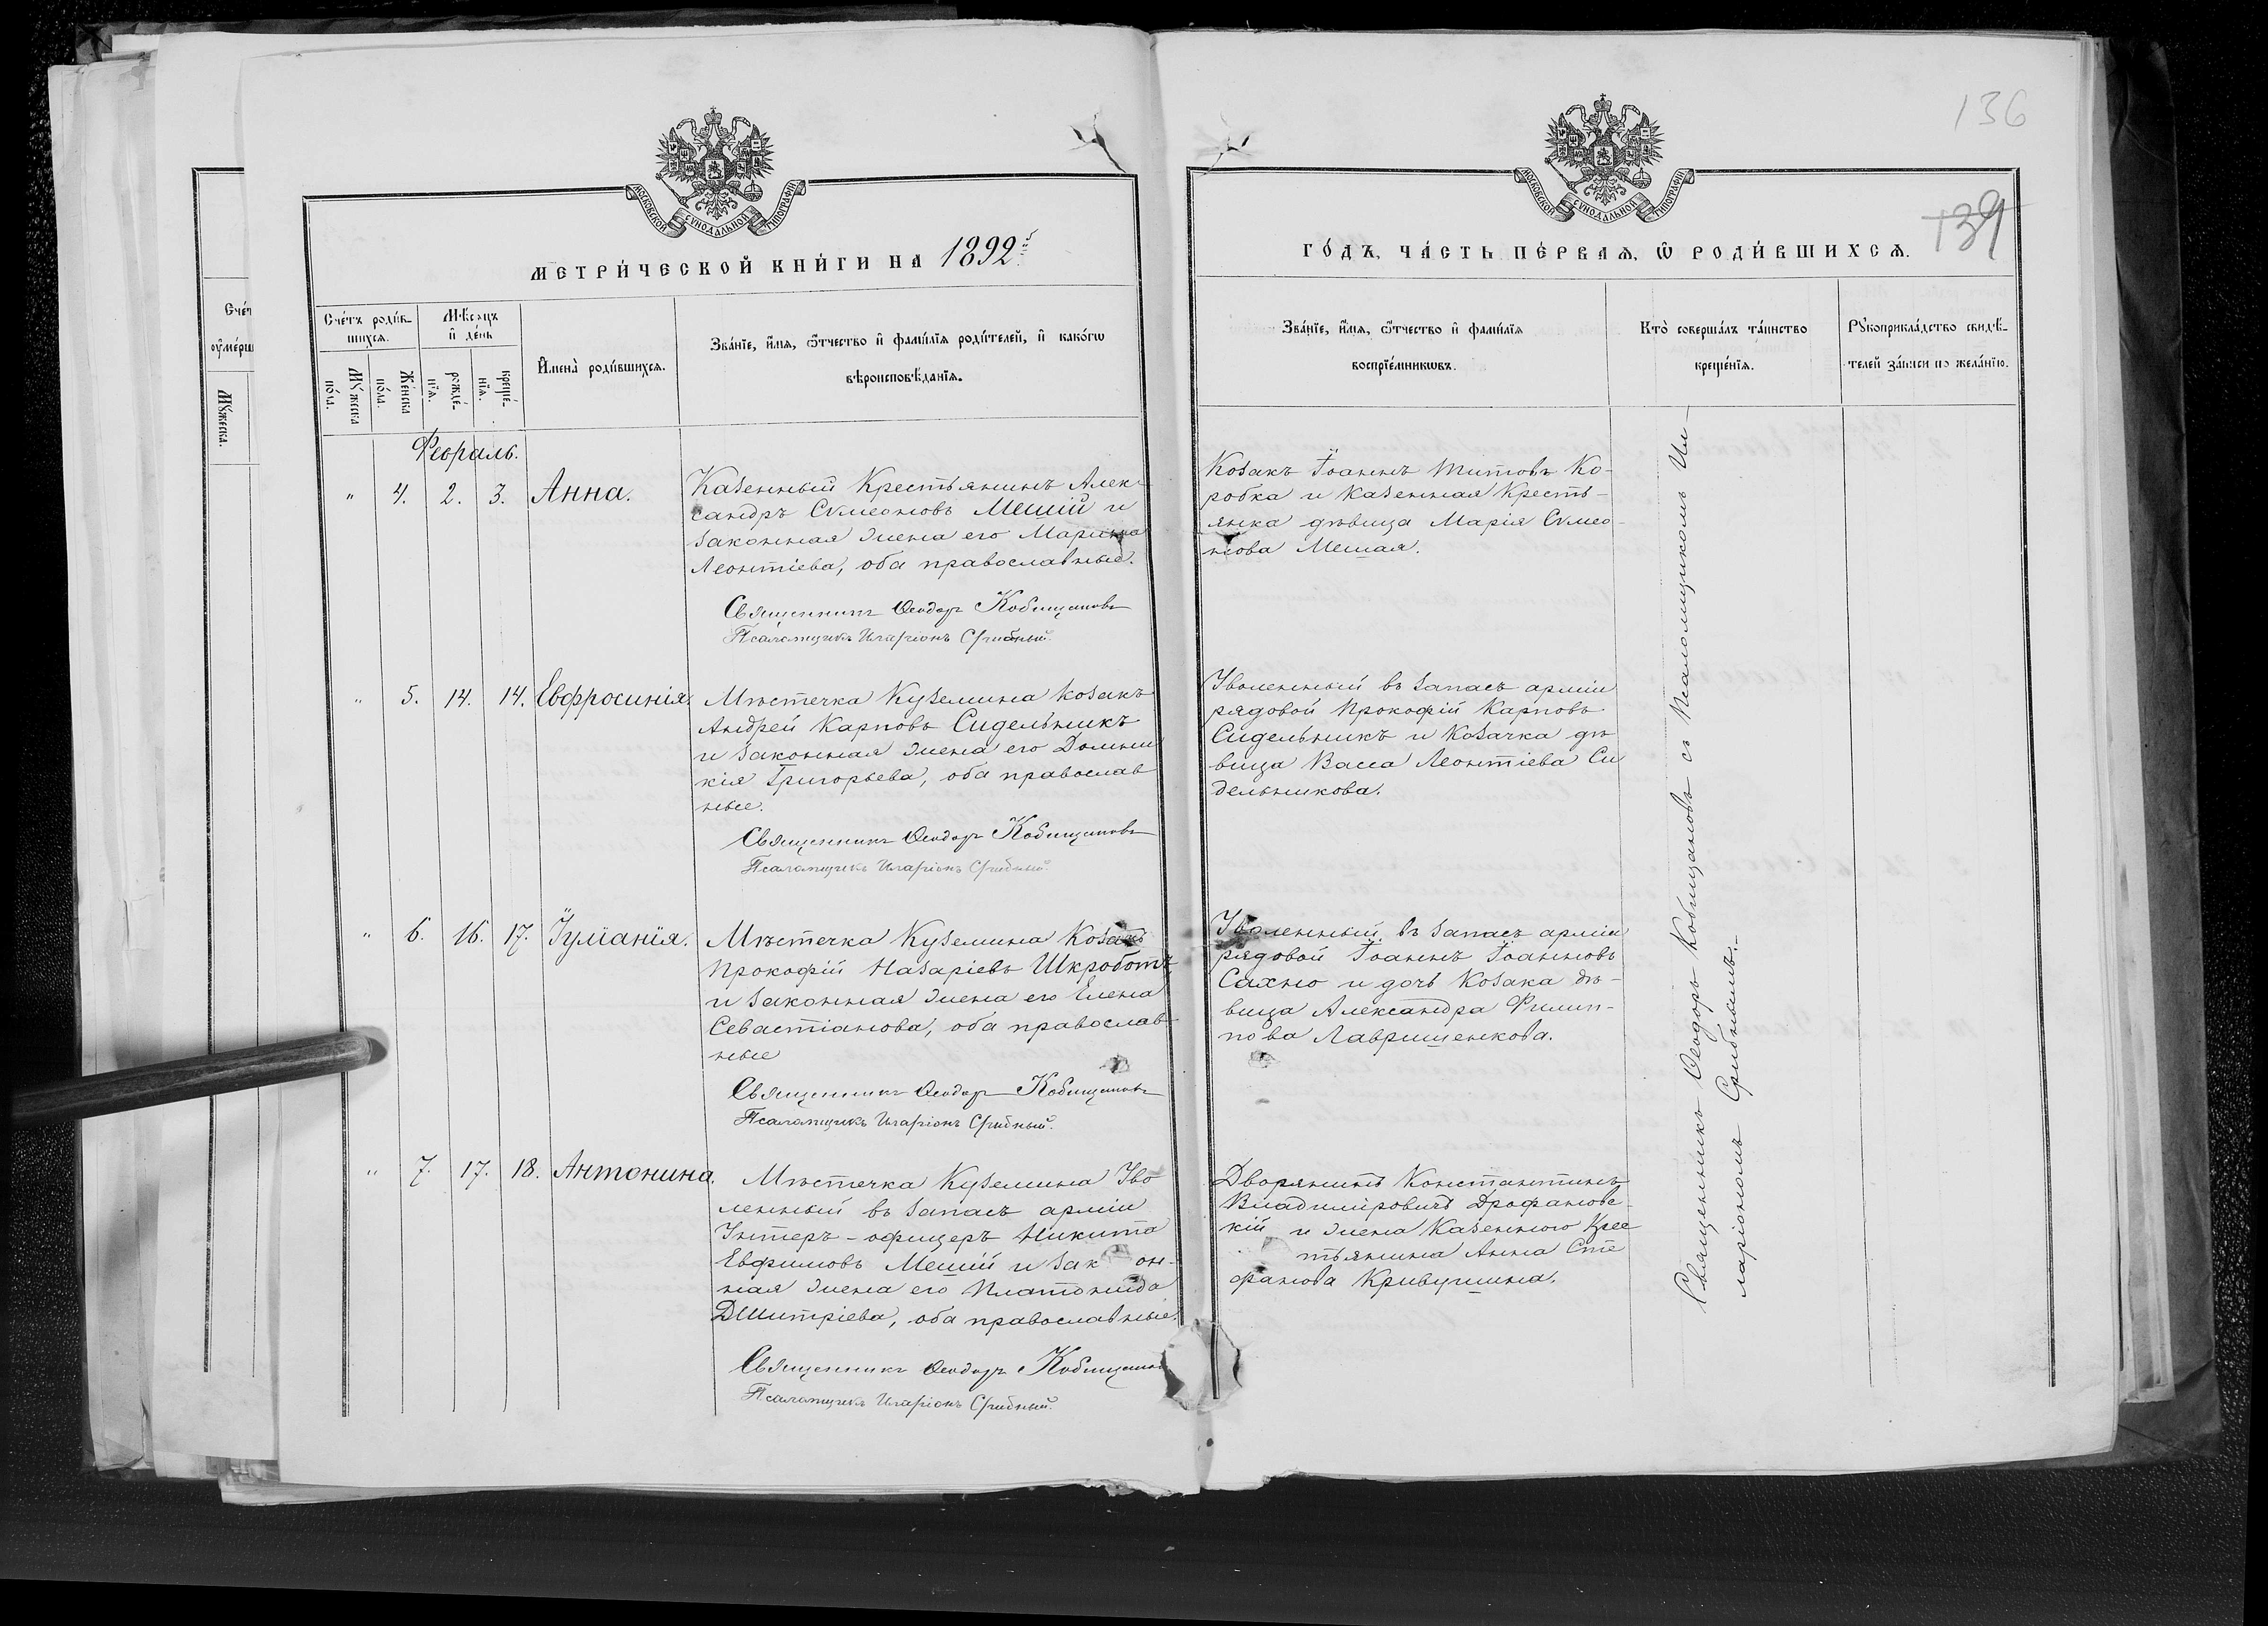 136
139
МОСКОВСКОЙ СѴНОДАЛЬНОЙ ТИПОГРАФИИ
МОСКОВСКОЙ СѴНОДАЛЬНОЙ ТИПОГРАФИИ
МЕТРИ́ЧЕСКОЙ КНИ́ГИ НА 1892й
ГО́ДЪ, ЧА́СТЬ ПЕ́РВАЯ, Ѡ РОДИ́ВШИХСЯ.
Сче́тъ роди́в-
шихся.
Мѣсяцъ
и де́нь
Му́жеска
по́ла.
Же́нска
по́ла.
рожде́-
нїя.
креще́-
нїя.
Имена̀ роди́вшихся.
Зва́нїе, и́мя, ѻ́тчество и фами́лїя роди́телей, и како́гѡ
вѣроисповѣ́данїя.
Зва́нїе, и́мя, ѻ́тчество и фами́лїя
воспрїе́мникѡвъ.
Кто̀ соверша́лъ та́инство
креще́нїя.
Рꙋкоприкла́дство свидѣ́-
телей за́писи по жела́нїю.
Февраль.
" 4. 2. 3. Анна.
Казенный Крестьянинъ Алек-
сандръ Сѵмеоновъ Мешій и
законная жена его Марина
Леонтіева, оба православные.
Священникъ Ѳеодоръ Кобищановъ
Псаломщикъ Иларіонъ Срибный.
Козакъ Іоаннъ Титовъ Ко-
робка и казенная Кресть-
янка дѣвица Марія Сѵмео-
нова Мешая.
" 5. 14. 14. Евфросинія.
Мѣстечка Куземина козакъ
Андрей Карповъ Сидельникъ
и законная жена его Домни
кія Григорьева, оба православ
ные.
Священникъ Ѳеодоръ Кобищановъ
Псаломщикъ Иларіонъ Срибный.
Уволенный въ запасъ арміи
рядовой Прокофій Карповъ
Сидельникъ и Козачка дѣ
вица Васса Леонтіева Си
дельникова.
" 6. 16. 17. Іуліанія.
Мѣстечка Куземина Козакъ
Прокофій Назаріевъ Шкроботъ
и законная жена его Елена
Севастіанова, оба православ-
ные
Священникъ Ѳеодоръ Кобищановъ
Псаломщикъ Иларіонъ Срибный.
Уволенный въ запасъ арміи
рядовой Іоаннъ Іоанновъ
Сахно и дочь Козака дѣ-
вица Александра Филип-
пова Лаврищенкова.
" 7. 17. 18. Антонина.
Мѣстечка Куземина Уво
ленный въ запасъ арміи
Унтеръ-офицеръ Никита
Евфимовъ Мешій и зак он-
ная жена его Платонида
Дмитріева, оба православные.
Священникъ Ѳеодоръ Кобищанов
Псаломщикъ Иларіонъ Срибный.
Дворянинъ Константинъ
Владиміровичъ Дрофановс-
кій и жена Казенного Крес
тьянина Анна Сте
фанова Кривушина.
Священникъ Ѳеодоръ Кобищановъ съ Псаломщикомъ Ил-
ларіономъ Срибнымъ.
Сче́т
оу҆ме́рш
Му́жеска.